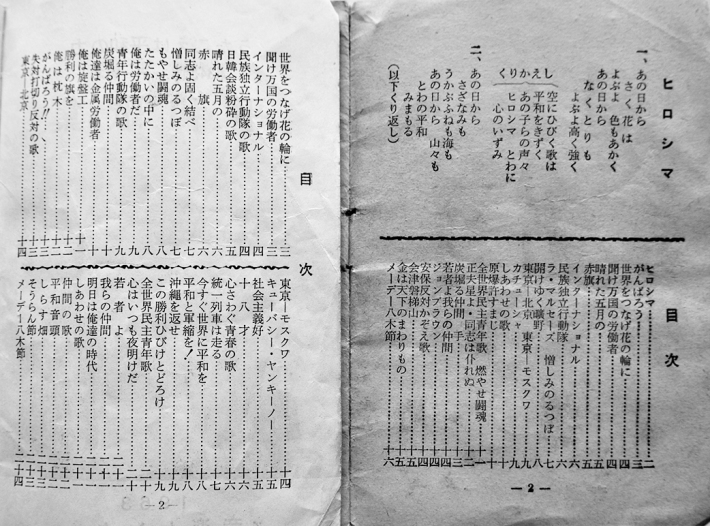 ヒロシマ
一、あの日から
さく花は
よぶよ 色もあかく
あの日から
なくとりも
よぶよ高く強く
くりかえし
空にひびく歌は
平和をきずく
あの子らの声々
ヒロシマ とわに
心のいずみ
二、あの日から
さざなみも
うかぶふねも海も
あの日から 山々も
とわの平和
みまもる
(以下くり返し)
目次
ヒロシマ……二
がんばろう……三
世界をつなげ花の輪に……三
聞け万国の労働者……四
晴れた五月の……五
赤旗……五
インターナショナル……六
民族独立行動隊……六
ラ・マルセーズ 憎しみのるつぼ……七
開けゆく曠野……八
東京―北京 東京―モスクワ……九
カチューシャ……九
しあわせの歌……十
原爆許すまじ……十一
全世界民主青年歌 燃やせ闘魂……十二
正夫星よ・同志は仆れぬ……十三
炭坑る仲間……十四
若者よ我らの仲間……十四
ジョンブラウン……十四
安保反対かぞえ歌……十四
会津磐梯山……十五
金は天下のまわりもの……十五
メーデー八木節……十六
―2―
目次
世界をつなげ花の輪に……三
聞け万国の労働者……三
インターナショナル……四
民族独立行動隊の歌……四
日韓会談粉砕の歌……五
晴れた五月の……六
赤旗……六
同志よ固く結べ……七
憎しみのるつぼ……七
もやせ闘魂……八
たたかいの中に……八
俺は労働者だ……九
青年行動隊の歌……九
炭坑る仲間……十
俺達は金属労働者……十
俺は旋盤工……十一
勝利の旗を……十一
俺は枕木……十二
がんばろう!!……十三
失対打切り反対の歌……十三
東京―北京……十四
東京―モスクワ……十四
キューバシー・ヤンキーノー……十五
社会主義好……十五
十八才……十六
心さわぐ青春の歌……十六
統一列車は走る……十七
今すぐ世界に平和を……十八
平和と軍縮を!……十八
沖縄を返せ……十九
この勝利ひびけとどろけ……十九
全世界民主青年歌……二十
心はいつも夜明けだ……二十
若者よ……二十一
我らの仲間……二十一
明日は俺達の時代……二十一
しあわせの歌……二十二
仲間の歌……二十二
平和音頭……二十二
そうらん節……二十三
メーデー八木節……二十四
―2―